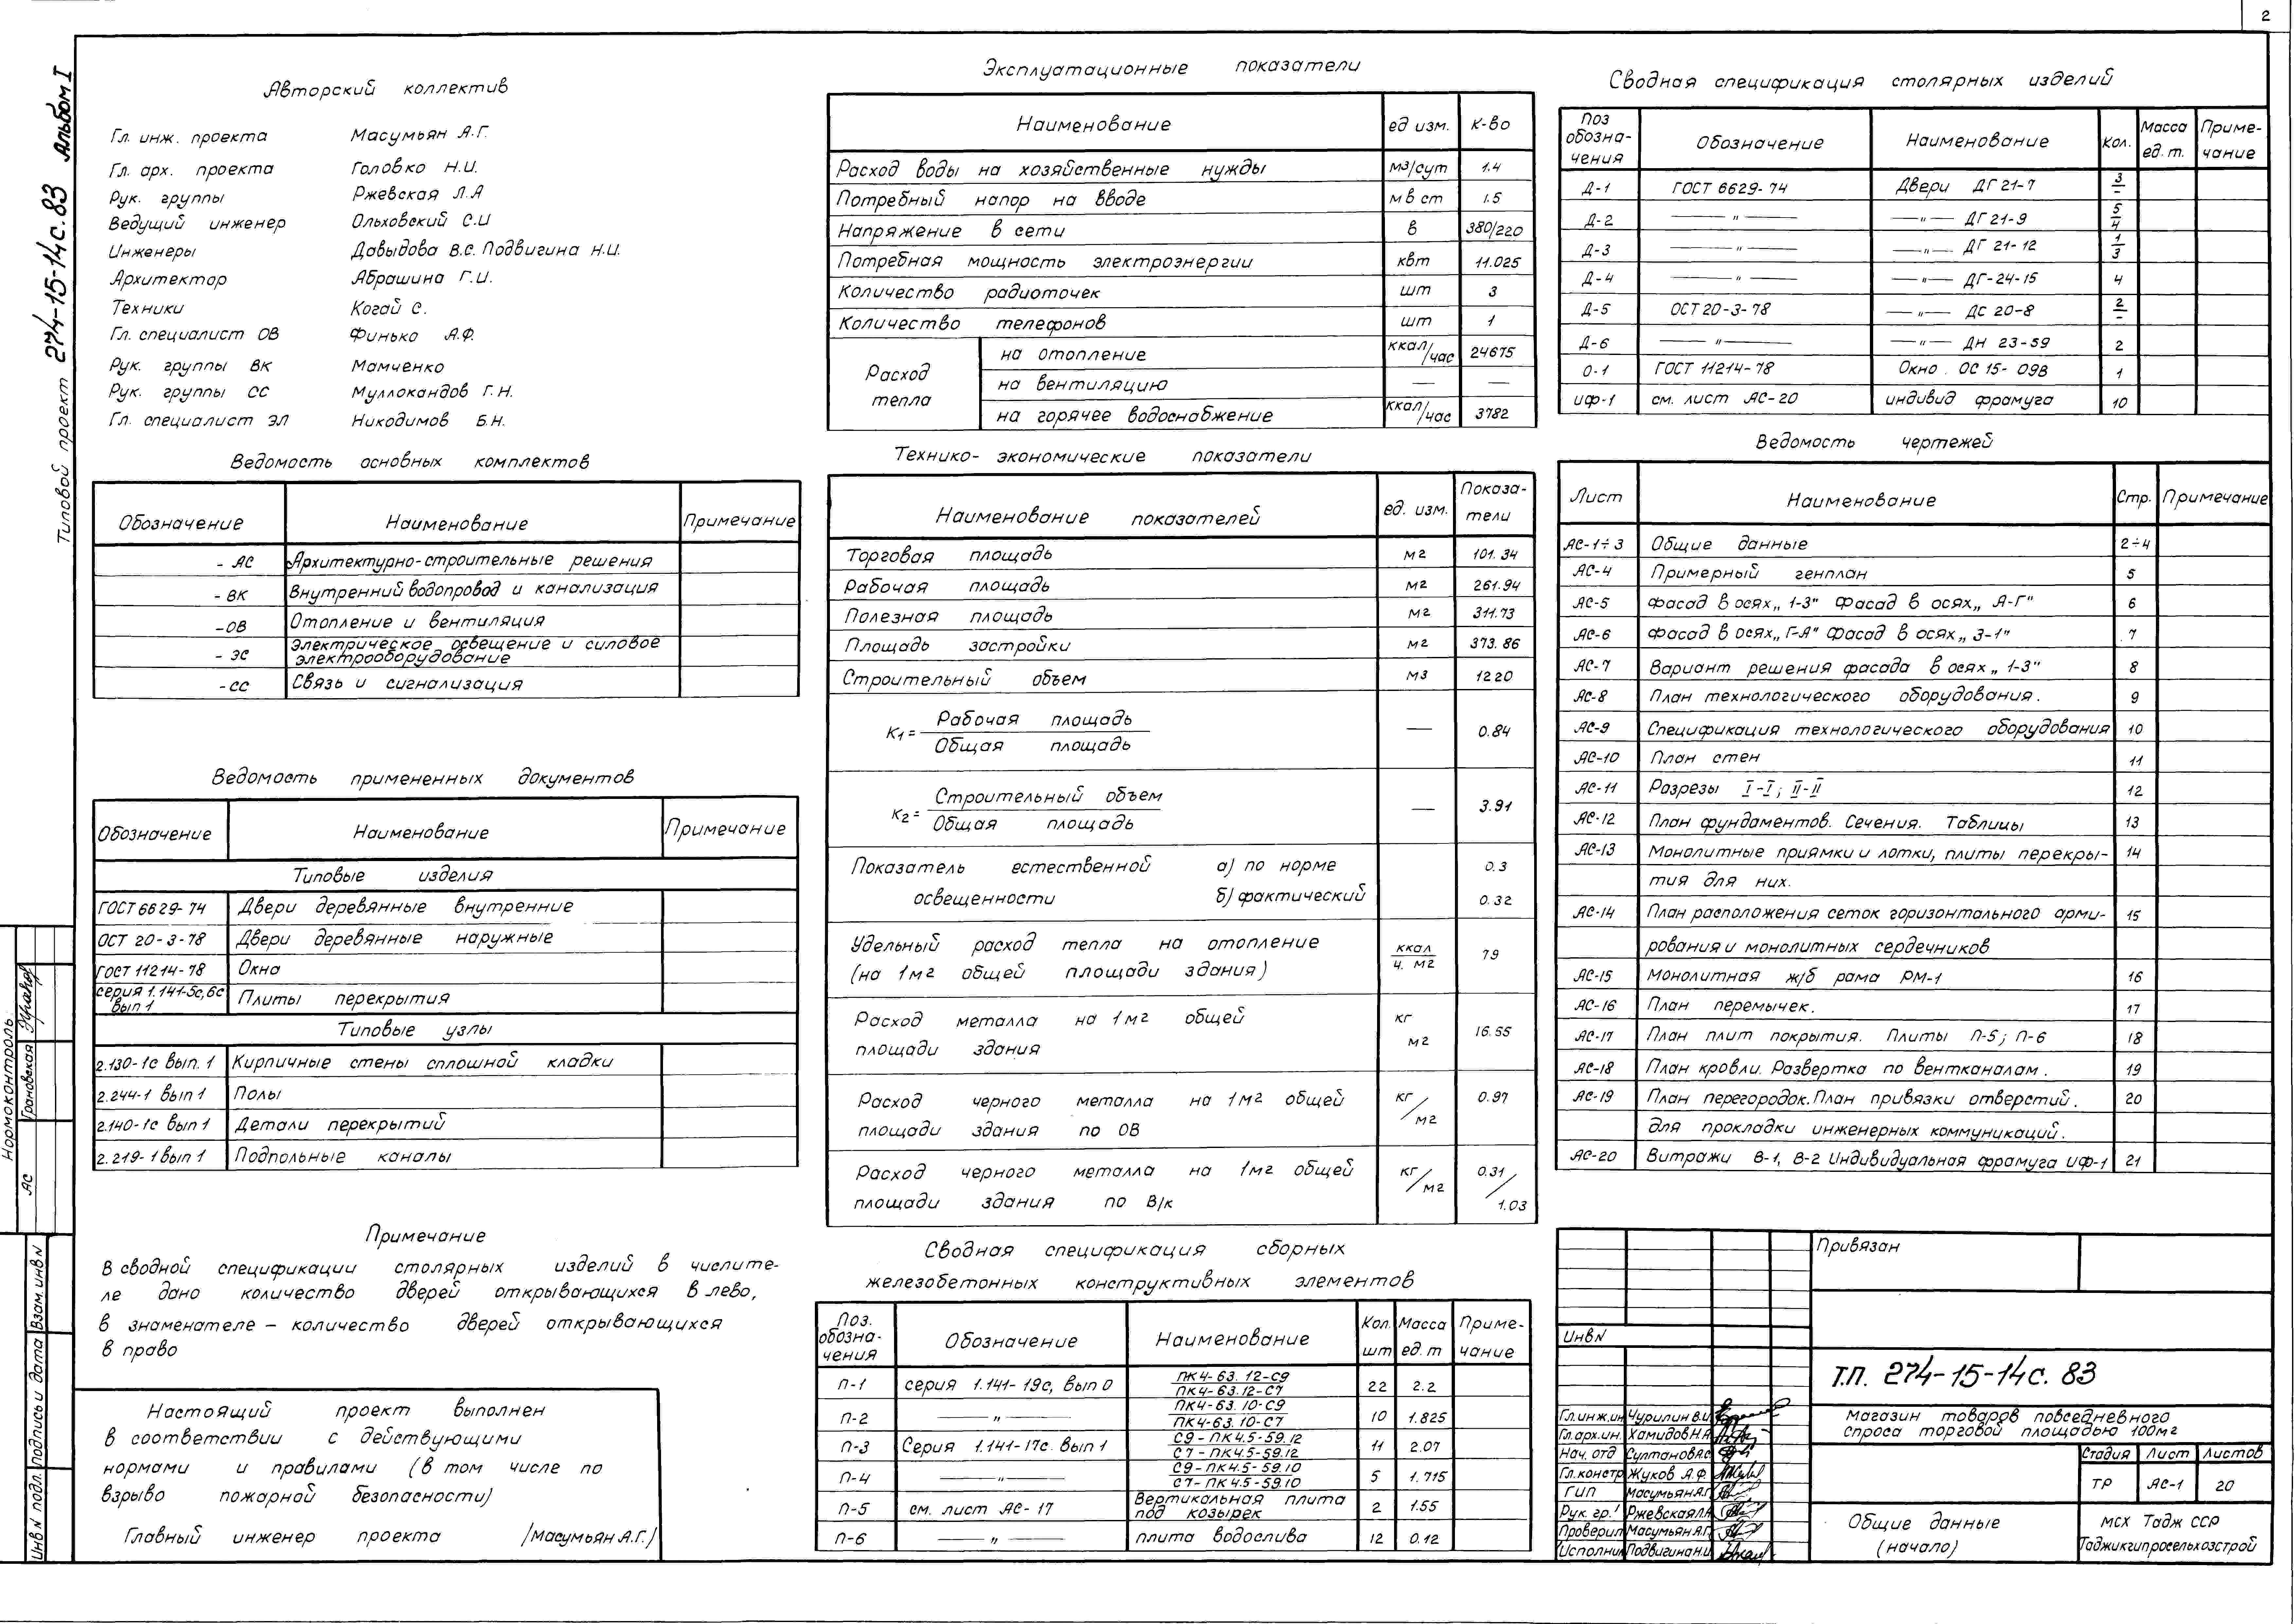 2
Типовой проект 274-15-14с.83 Альбом I
Авторский коллектив
Гл. инж. проекта Масумьян А.Г.
Гл. арх. проекта Головко Н.И.
Рук. группы Ржевская Л.А
Ведущий инженер Ольховский С.И
Инженеры Давыдова В.С. Подвигина Н.И.
Архитектор Абрашина Г.И.
Техники Когай С.
Гл. специалист ОВ Финько А.Ф.
Рук. группы ВК Мамченко
Рук. группы СС Муллокандов Г.Н.
Гл. специалист ЭЛ Никодимов Б.Н.
Ведомость основных комплектов
Обозначение Наименование Примечание
- АС Архитектурно-строительные решения
- ВК Внутренний водопровод и канализация
- ОВ Отопление и вентиляция
- ЭС Электрическое освещение и силовое
электрооборудование
- СС Связь и сигнализация
Ведомость примененных документов
Обозначение Наименование Примечание
Типовые изделия
ГОСТ 6629-74 Двери деревянные внутренние
ОСТ 20-3-78 Двери деревянные наружные
ГОСТ 11214-78 Окна
серия 1.141-5с,6с Плиты перекрытия
вып 1
Типовые узлы
2.130-1с вып. 1 Кирпичные стены сплошной кладки
2.244-1 вып 1 Полы
2.140-1с вып 1 Детали перекрытий
2.219-1 вып 1 Подпольные каналы
Примечание
В сводной спецификации столярных изделий в числите-
ле дано количество дверей открывающихся в лево,
в знаменателе – количество дверей открывающихся
в право
Настоящий проект выполнен
в соответствии с действующими
нормами и правилами (в том числе по
взрыво пожарной безопасности)
Главный инженер проекта /Масумьян А.Г./
Эксплуатационные показатели
Наименование ед изм. К-во
Расход воды на хозяйственные нужды м3/сут 1.4
Потребный напор на вводе м в ст 1.5
Напряжение в сети в 380/220
Потребная мощность электроэнергии квт 11.025
Количество радиоточек шт 3
Количество телефонов шт 1
Расход тепла на отопление ккал/час 24675
на вентиляцию — —
на горячее водоснабжение ккал/час 3782
Технико-экономические показатели
Наименование показателей ед. изм. Показа-
тели
Торговая площадь м2 101.34
Рабочая площадь м2 261.94
Полезная площадь м2 311.73
Площадь застройки м2 373.86
Строительный объем м3 1220
К1 = Рабочая площадь — 0.84
Общая площадь
К2 = Строительный объем — 3.91
Общая площадь
Показатель естественной а) по норме 0.3
освещенности б) фактический 0.32
Удельный расход тепла на отопление ккал 79
(на 1м2 общей площади здания) ч. м2
Расход металла на 1м2 общей кг 16.55
площади здания м2
Расход черного металла на 1м2 общей кг/м2 0.97
площади здания по ОВ
Расход черного металла на 1м2 общей кг/м2 0.31/1.03
площади здания по В/к
Сводная спецификация сборных
железобетонных конструктивных элементов
Поз. обозна-чения Обозначение Наименование Кол. шт Масса ед. т Приме-чание
П-1 серия 1.141-19с, вып 0 ПК4-63.12-С9 22 2.2
ПК4-63.12-С7
П-2 —„— ПК4-63.10-С9 10 1.825
ПК4-63.10-С7
П-3 Серия 1.141-17с. вып 1 С9-ПК4.5-59.12 11 2.07
С7-ПК4.5-59.12
П-4 —„— С9-ПК4.5-59.10 5 1.715
С7-ПК4.5-59.10
П-5 см. лист АС-17 Вертикальная плита 2 1.55
под козырек
П-6 —„— плита водослива 12 0.12
Сводная спецификация столярных изделий
Поз обозна-чения Обозначение Наименование Кол. Масса ед. т. Приме-чание
Д-1 ГОСТ 6629-74 Двери ДГ 21-7 3/-
Д-2 —„— —„— ДГ 21-9 5/4
Д-3 —„— —„— ДГ 21-12 1/3
Д-4 —„— —„— ДГ-24-15 4
Д-5 ОСТ 20-3-78 —„— ДС 20-8 2/-
Д-6 —„— —„— ДН 23-59 2
О-1 ГОСТ 11214-78 Окно. ОС 15-09В 1
ИФ-1 см. лист АС-20 индивид фрамуга 10
Ведомость чертежей
Лист Наименование Стр. Примечание
АС-1÷3 Общие данные 2÷4
АС-4 Примерный генплан 5
АС-5 Фасад в осях „1-3" Фасад в осях „А-Г" 6
АС-6 Фасад в осях „Г-А" Фасад в осях „3-1" 7
АС-7 Вариант решения фасада в осях „1-3" 8
АС-8 План технологического оборудования. 9
АС-9 Спецификация технологического оборудования 10
АС-10 План стен 11
АС-11 Разрезы I-I; II-II 12
АС-12 План фундаментов. Сечения. Таблицы 13
АС-13 Монолитные приямки и лотки, плиты перекры- 14
тия для них.
АС-14 План расположения сеток горизонтального арми- 15
рования и монолитных сердечников
АС-15 Монолитная ж/б рама РМ-1 16
АС-16 План перемычек. 17
АС-17 План плит покрытия. Плиты П-5; П-6 18
АС-18 План кровли. Развертка по вентканалам. 19
АС-19 План перегородок. План привязки отверстий. 20
для прокладки инженерных коммуникаций.
АС-20 Витражи В-1, В-2 Индивидуальная фрамуга ИФ-1 21
Привязан
Инв N
Т.П. 274-15-14с. 83
Гл.инж.ин Чурилин В.И
Гл.арх.ин. Хамидов Н.Я
Нач. отд Султанов А.С.
Гл.констр Жуков А.Ф.
ГИП Масумьян А.Г.
Рук. гр. Ржевская Л.А
Проверил Масумьян А.Г.
Исполнил Подвигина Н.И
Магазин товаров повседневного
спроса торговой площадью 100м2
Стадия Лист Листов
ТР АС-1 20
Общие данные
(начало)
МСХ Тадж ССР
Таджикгипросельхозстрой
Нормоконтроль
АС Грановская
Инв N подл. Подпись и дата Взам. инв N